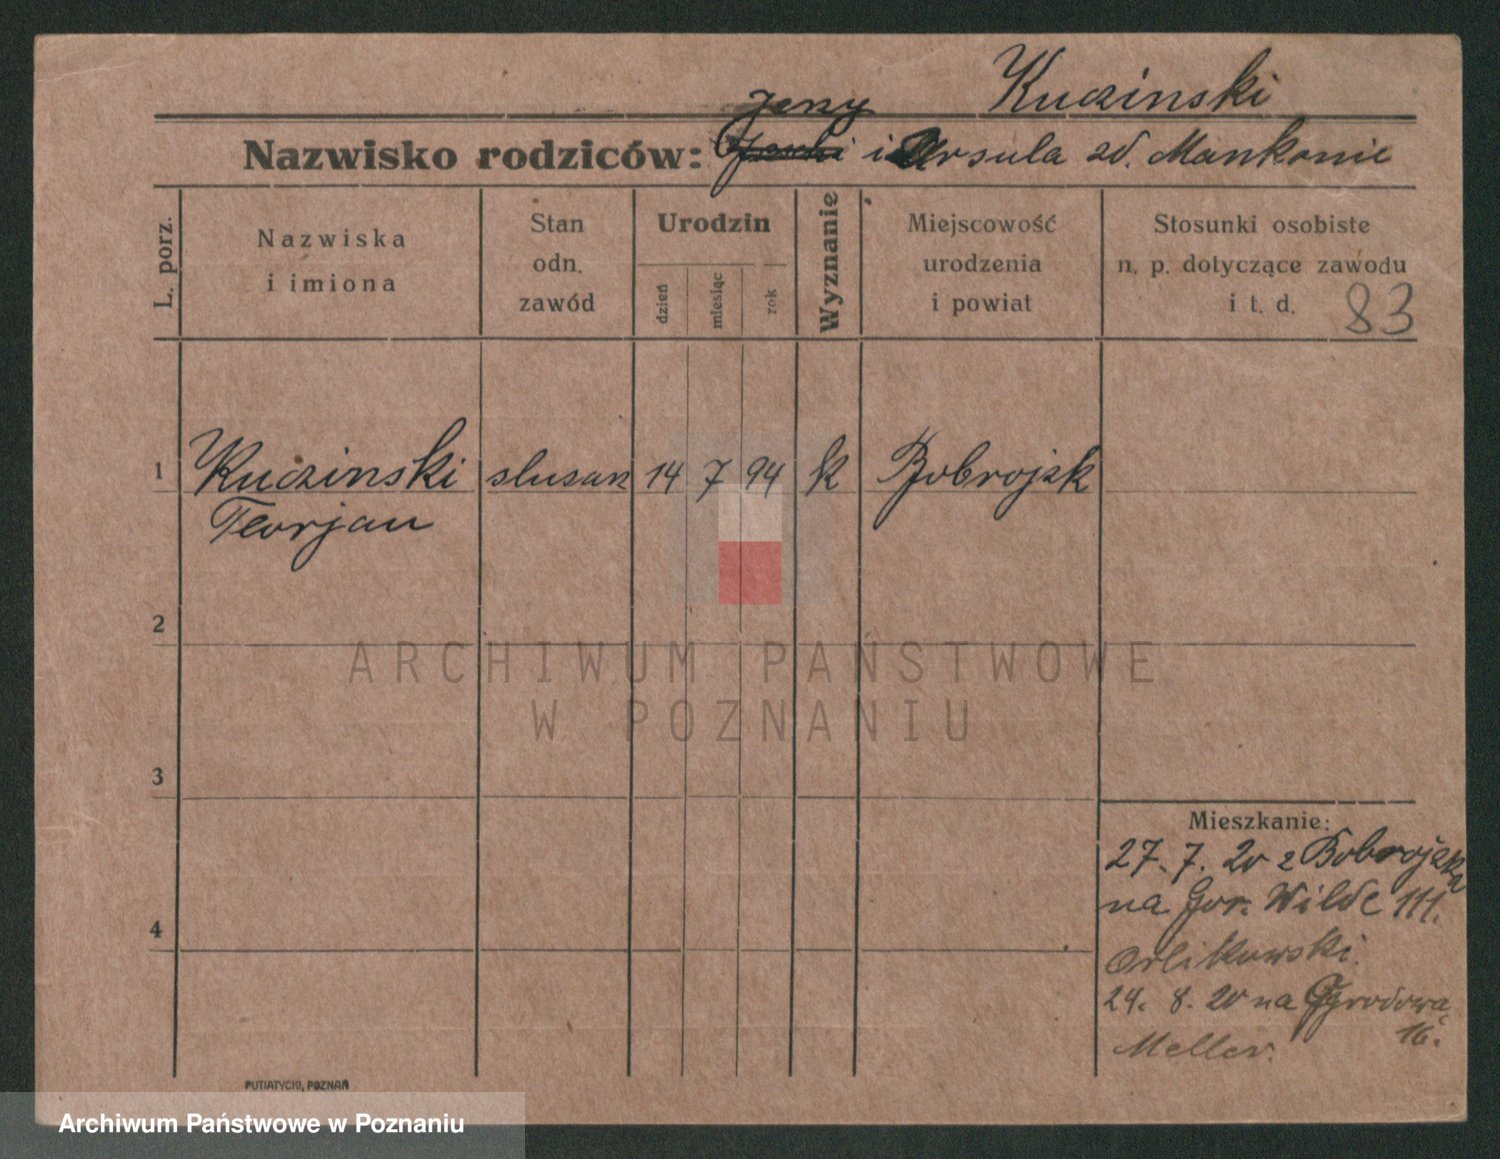 Kuczinski
Jerzy
Nazwisko rodziców: i Ursula zd. Mankonie
L. porz.
Nazwiska i imiona
Stan odn. zawód
Urodzin
dzień
miesiąc
rok
Wyznanie
Miejscowość urodzenia i powiat
Stosunki osobiste n. p. dotyczące zawodu i t. d.
83
1 Kuczinski slusarz 14 7 94 k Bobrojsk
Florjan
2
3
4
Mieszkanie:
27. 7. 20 z Bobrojska
na Gór. Wilde 111.
Orlikowski.
24. 8. 20 na Ogrodowa
16.
Meller.
PUTIATYCKI, POZNAŃ
ARCHIWUM PAŃSTWOWE
W POZNANIU
Archiwum Państwowe w Poznaniu